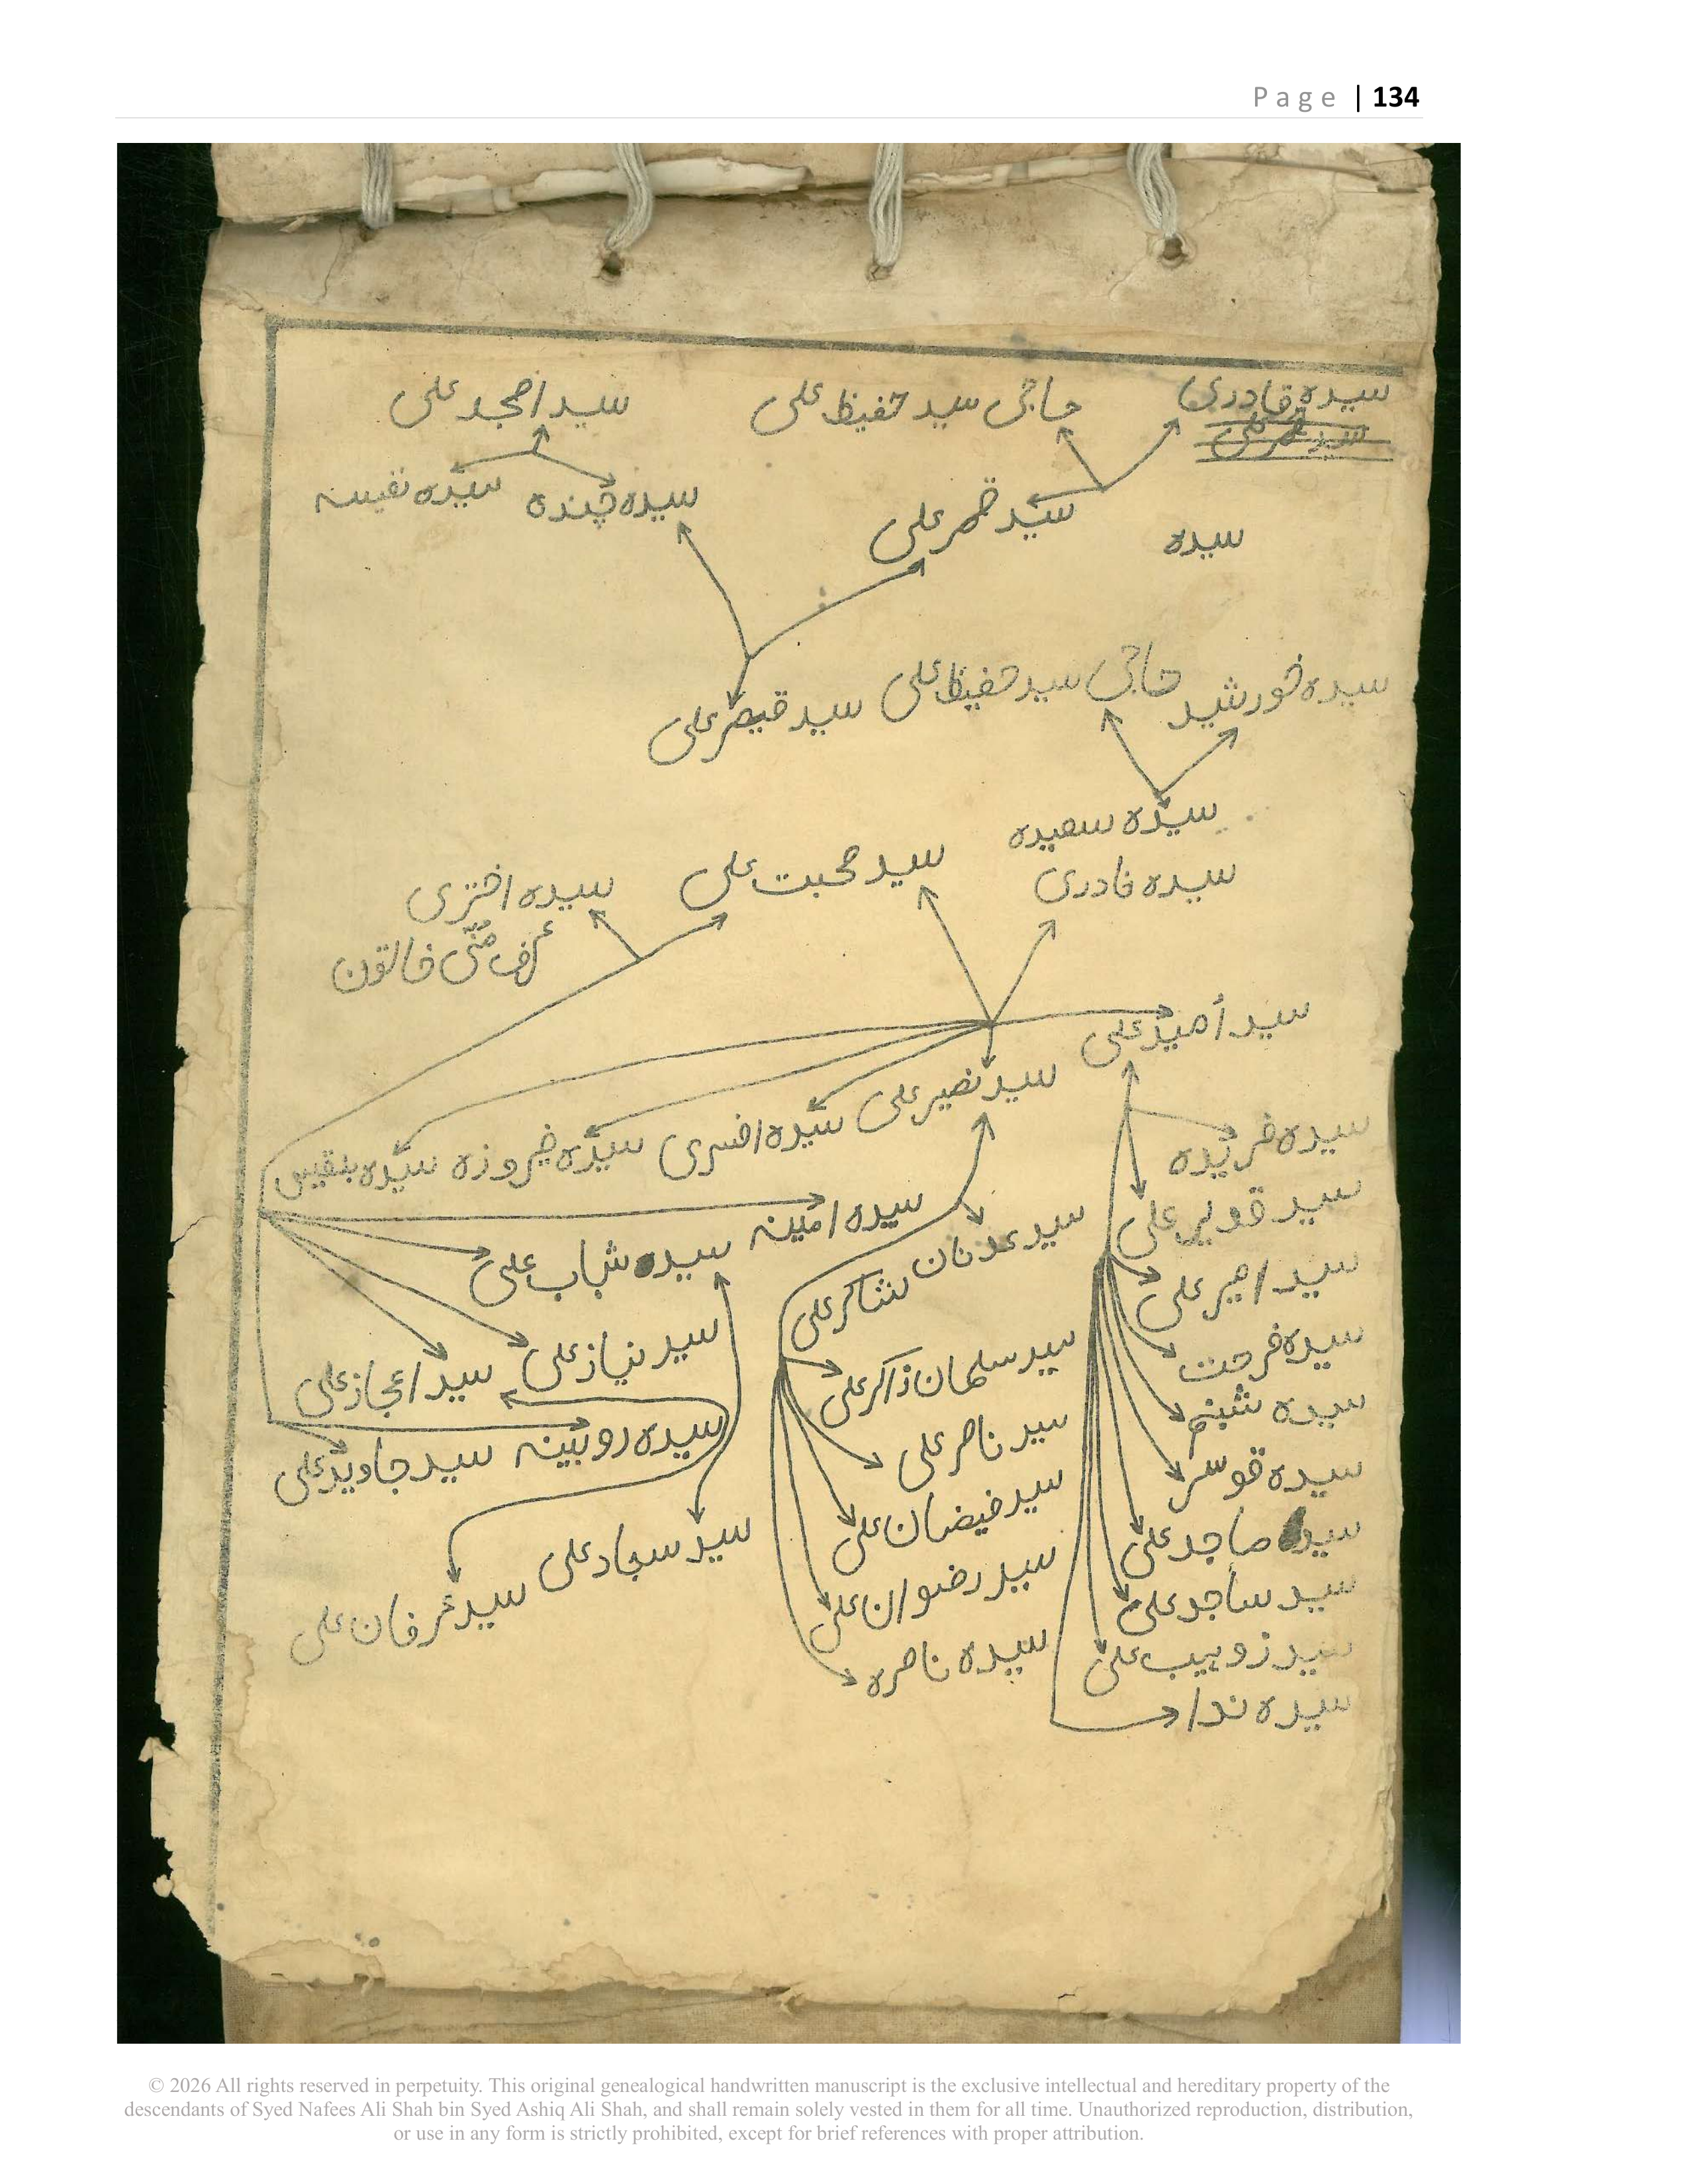 Page | 134
سیدہ قادری
حاجی سید حفیظ علی
سید امجد علی
سید قمر علی
سیدہ چندہ
سیدہ نفیسہ
سید قمر علی
سیدہ
سیدہ خورشید
حاجی سید حفیظ علی
سید قیصر علی
سیدہ سعیدہ
سیدہ قادری
سید محبت علی
سیدہ اختری
عرف منّی خاتون
سید اُمید علی
سید نصیر علی
سیدہ افسری
سیدہ فیروزہ
سیدہ بلقیس
سیدہ فریدہ
سید قدیر علی
سید امیر علی
سیدہ فرحت
سیدہ شبنم
سیدہ قوسر
سید ماجد علی
سید ساجد علی
سید زوہیب علی
سیدہ ندا
سید عدنان شاکر علی
سید سلمان ذاکر علی
سید ناصر علی
سید فیضان علی
سید رضوان علی
سیدہ ناصرہ
سیدہ امینہ
سید شباب علی
سید نیاز علی
سید اعجاز علی
سیدہ روبینہ
سید جاوید علی
سید سجاد علی
سید عرفان علی
© 2026 All rights reserved in perpetuity. This original genealogical handwritten manuscript is the exclusive intellectual and hereditary property of the
descendants of Syed Nafees Ali Shah bin Syed Ashiq Ali Shah, and shall remain solely vested in them for all time. Unauthorized reproduction, distribution,
or use in any form is strictly prohibited, except for brief references with proper attribution.